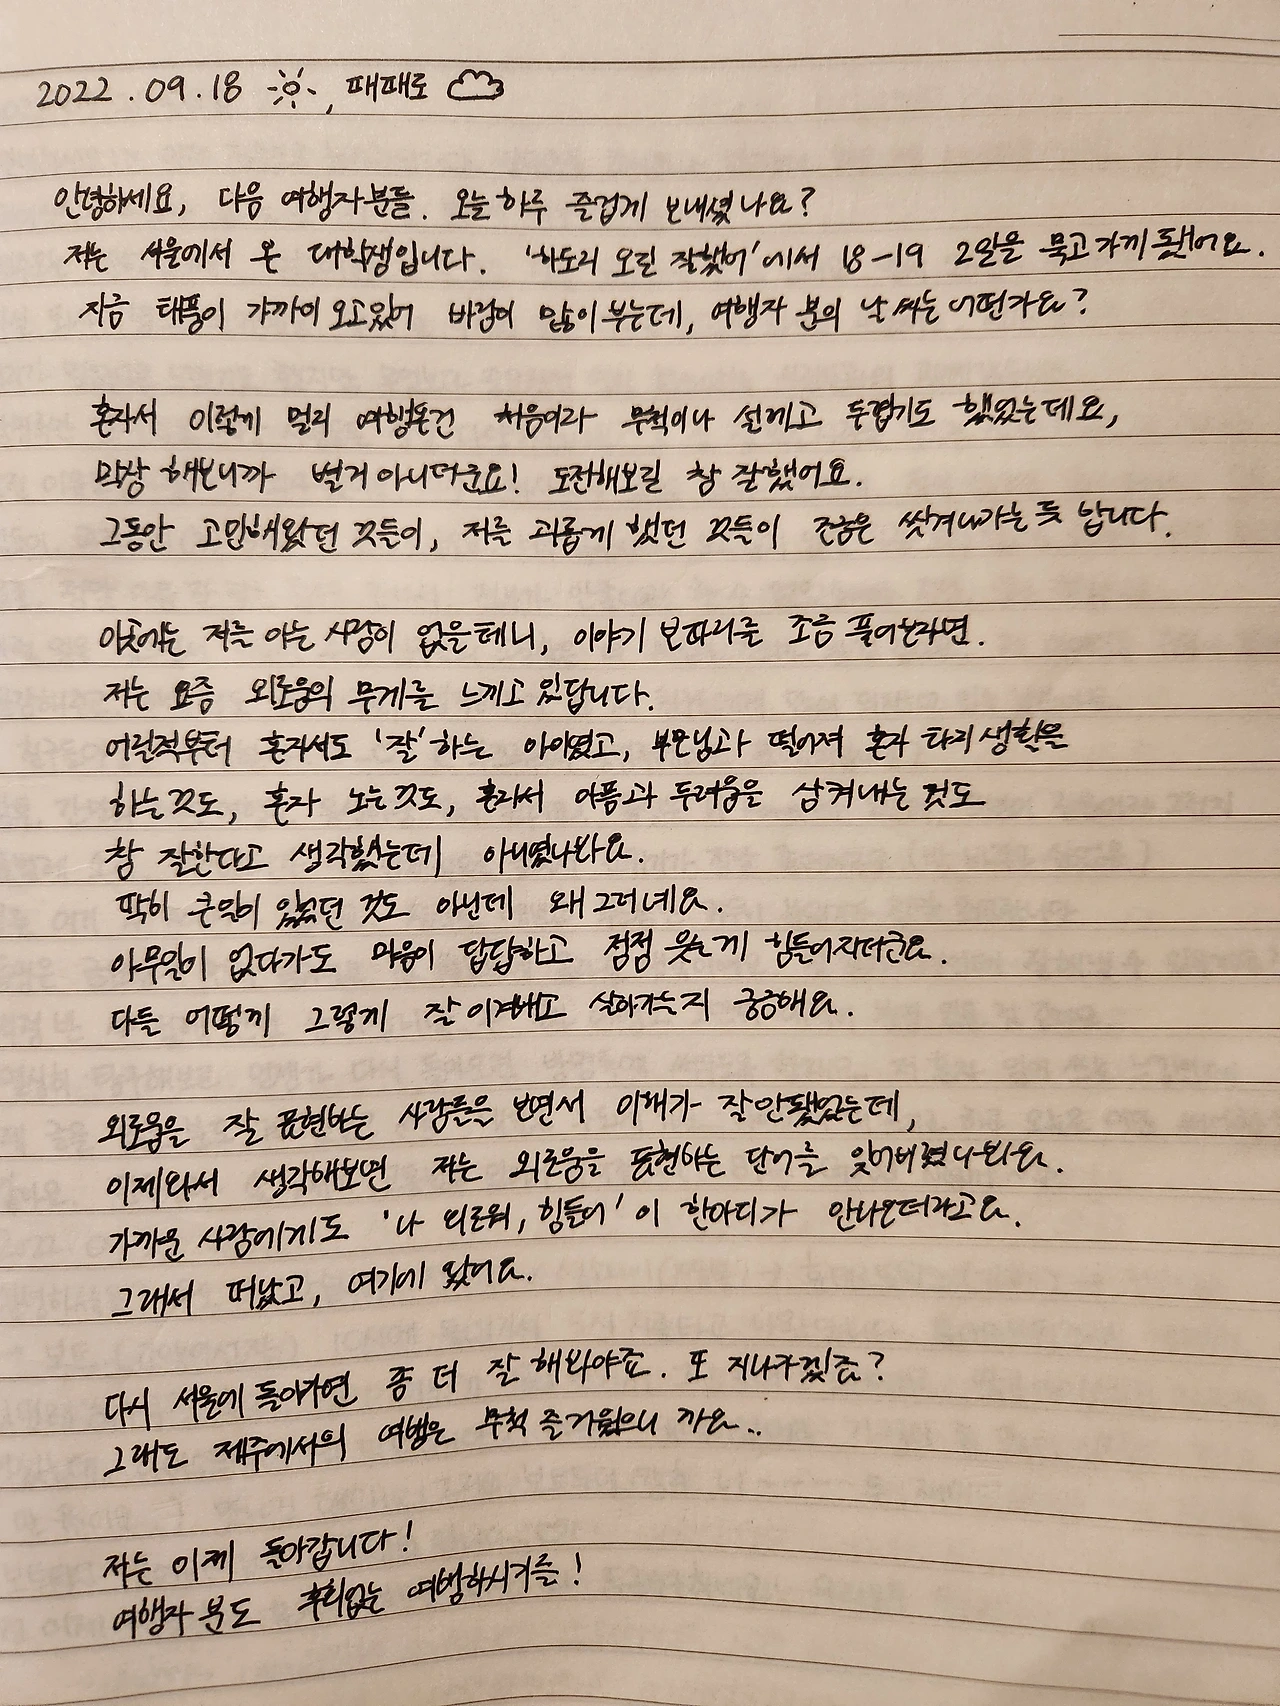 2022.09.18 , 때때로
안녕하세요, 다음 여행자분들. 오늘 하루 즐겁게 보내셨나요?
저는 서울에서 온 대학생입니다. '하도리 오길 잘했어'에서 18-19 2일을 묵고 가게 됐어요.
지금 태풍이 가까이 오고있어 바람이 많이 부는데, 여행자 분의 날씨는 어떤가요?
혼자서 이렇게 멀리 여행온건 처음이라 무척이나 설레고 두렵기도 했었는데요,
막상 해보니까 별거 아니더군요! 도전해보길 참 잘했어요.
그동안 고민해왔던 것들이, 저를 괴롭게 했던 것들이 조금은 씻겨나가는 듯 합니다.
이곳에는 저를 아는 사람이 없을테니, 이야기 보따리를 조금 풀어보자면.
저는 요즘 외로움의 무게를 느끼고 있답니다.
어릴적부터 혼자서도 '잘'하는 아이였고, 부모님과 떨어져 혼자 타지생활을
하는것도, 혼자 노는것도, 혼자서 아픔과 두려움을 삼켜내는 것도
참 잘한다고 생각했는데 아니였나봐요.
딱히 큰일이 있었던 것도 아닌데 왜 그러네요.
아무일이 없다가도 마음이 답답하고 점점 웃는게 힘들어지더군요.
다들 어떻게 그렇게 잘 이겨내고 살아가는지 궁금해요.
외로움을 잘 표현하는 사람들을 보면서 이해가 잘안됐었는데,
이제와서 생각해보면 저는 외로움을 표현하는 단어를 잊어버렸나봐요.
가까운 사람에게도 '나 외로워, 힘들어' 이 한마디가 안나오더라고요.
그래서 떠났고, 여기에 왔어요.
다시 서울에 돌아가면 좀 더 잘 해봐야죠. 또 지나가겠죠?
그래도 제주에서의 여행은 무척 즐거웠으니 까요..
저는 이제 돌아갑니다!
여행자 분도 후회없는 여행하시기를!